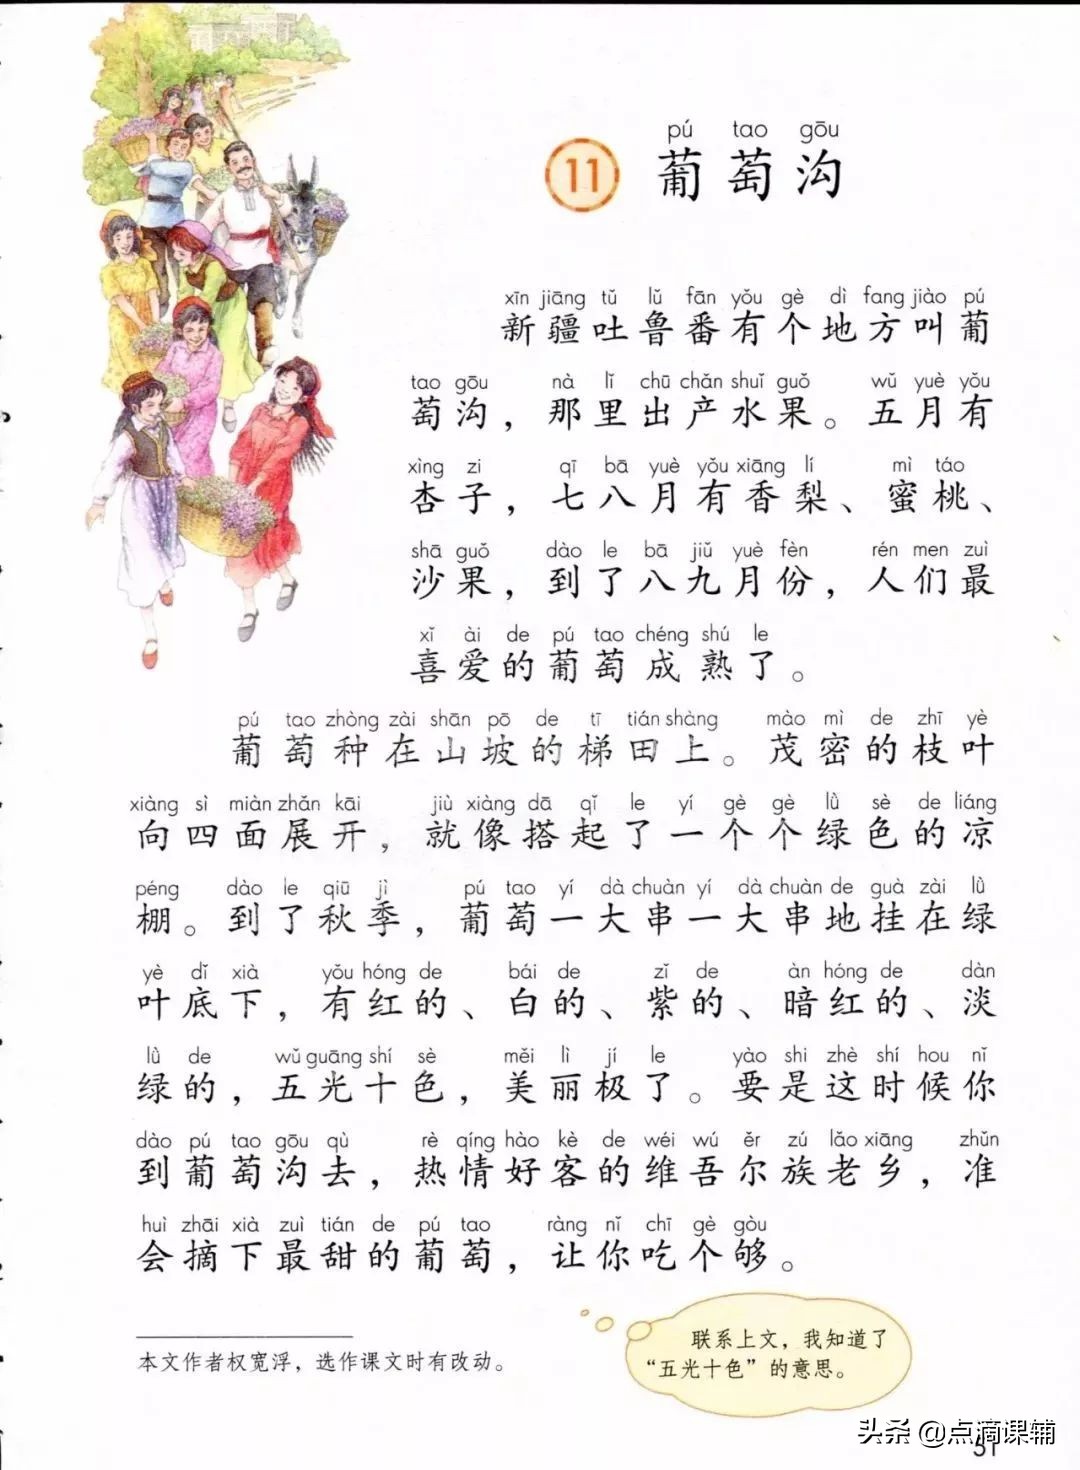 pú tao gōu
11 葡萄沟
xīn jiāng tǔ lǔ fān yǒu gè dì fang jiào pú
新疆吐鲁番有个地方叫葡
tao gōu nà lǐ chū chǎn shuǐ guǒ wǔ yuè yǒu
萄沟，那里出产水果。五月有
xìng zi qī bā yuè yǒu xiāng lí mì táo
杏子，七八月有香梨、蜜桃、
shā guǒ dào le bā jiǔ yuè fèn rén men zuì
沙果，到了八九月份，人们最
xǐ ài de pú tao chéng shú le
喜爱的葡萄成熟了。
pú tao zhòng zài shān pō de tī tián shàng mào mì de zhī yè
葡萄种在山坡的梯田上。茂密的枝叶
xiàng sì miàn zhǎn kāi jiù xiàng dā qǐ le yí gè gè lǜ sè de liáng
向四面展开，就像搭起了一个个绿色的凉
péng dào le qiū jì pú tao yí dà chuàn yí dà chuàn de guà zài lǜ
棚。到了秋季，葡萄一大串一大串地挂在绿
yè dǐ xià yǒu hóng de bái de zǐ de àn hóng de dàn
叶底下，有红的、白的、紫的、暗红的、淡
lǜ de wǔ guāng shí sè měi lì jí le yào shi zhè shí hou nǐ
绿的，五光十色，美丽极了。要是这时候你
dào pú tao gōu qù rè qíng hào kè de wéi wú ěr zú lǎo xiāng zhǔn
到葡萄沟去，热情好客的维吾尔族老乡，准
huì zhāi xià zuì tián de pú tao ràng nǐ chī gè gòu
会摘下最甜的葡萄，让你吃个够。
联系上文，我知道了
“五光十色”的意思。
本文作者权宽浮，选作课文时有改动。
头条 @点滴课辅
51